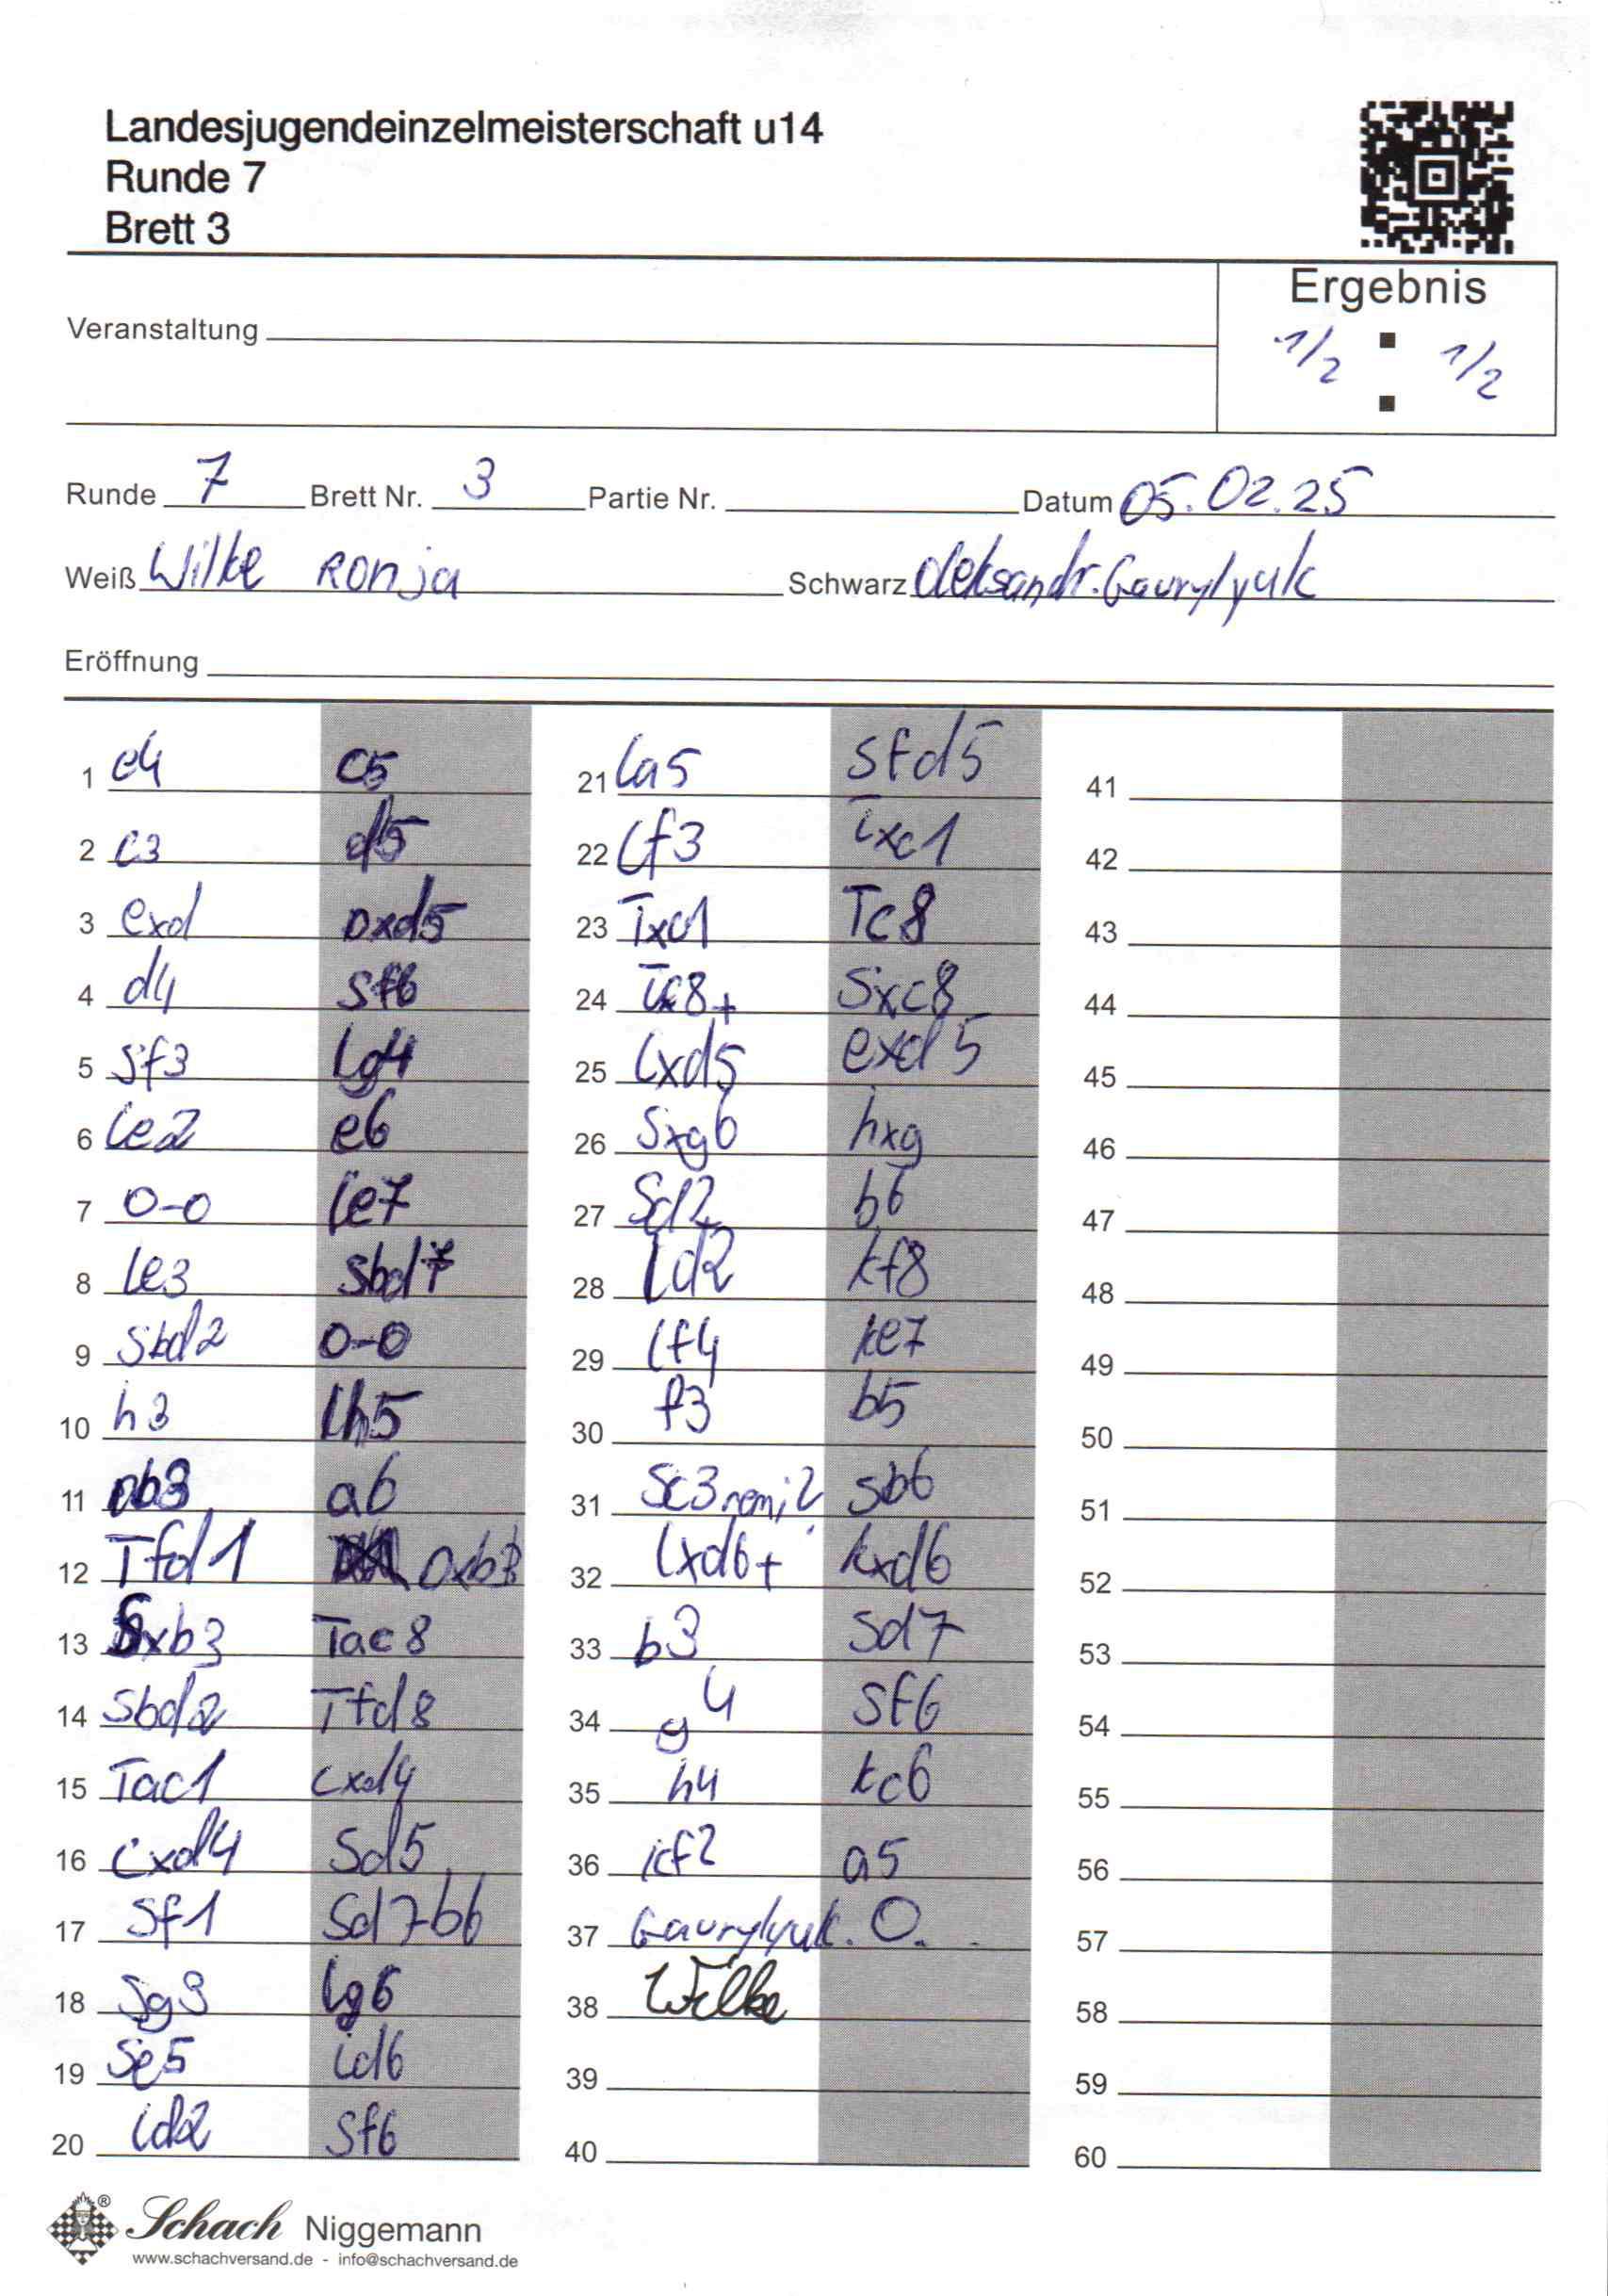 Landesjugendeinzelmeisterschaft u14
Runde 7
Brett 3
Ergebnis
1/2 : 1/2
Veranstaltung
Runde 7 Brett Nr. 3 Partie Nr. Datum 05.02.25
Weiß Wilke Ronja Schwarz Oleksandr. Gavrylyuk
Eröffnung
1 e4 c5
2 c3 d5
3 exd Dxd5
4 d4 Sf6
5 Sf3 Lg4
6 Le2 e6
7 0-0 Le7
8 Le3 Sbd7
9 Sbd2 0-0
10 h3 Lh5
11 Db3 a6
12 Tfd1 Dxb3
13 Sxb3 Tac8
14 Sbd2 Tfd8
15 Tac1 cxd4
16 cxd4 Sd5
17 Sf1 Sd7b6
18 Sg3 Lg6
19 Se5 Ld6
20 Ld2 Sf6
21 La5 Sfd5
22 Lf3 Txc1
23 Txc1 Tc8
24 Txc8+ Sxc8
25 Lxd5 exd5
26 Sxg6 hxg
27 Se2 b6
28 Ld2 kf8
29 Lf4 ke7
30 f3 b5
31 Sc3 remi? Sb6
32 Lxd6+ kxd6
33 b3 Sd7
34 g4 Sf6
35 h4 kc6
36 kf2 a5
37 Gavrylyuk. O.
38 Wilke
39
40
41
42
43
44
45
46
47
48
49
50
51
52
53
54
55
56
57
58
59
60
Schach Niggemann
www.schachversand.de - info@schachversand.de